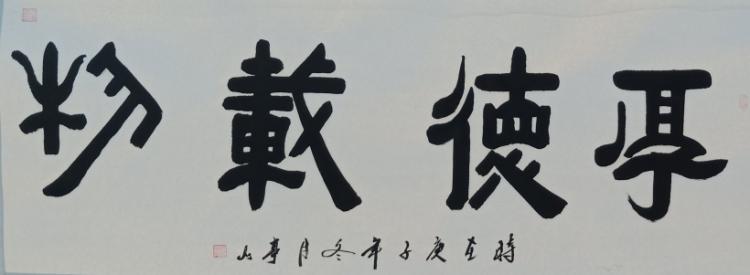 厚德載物
時在庚子年冬月夀山